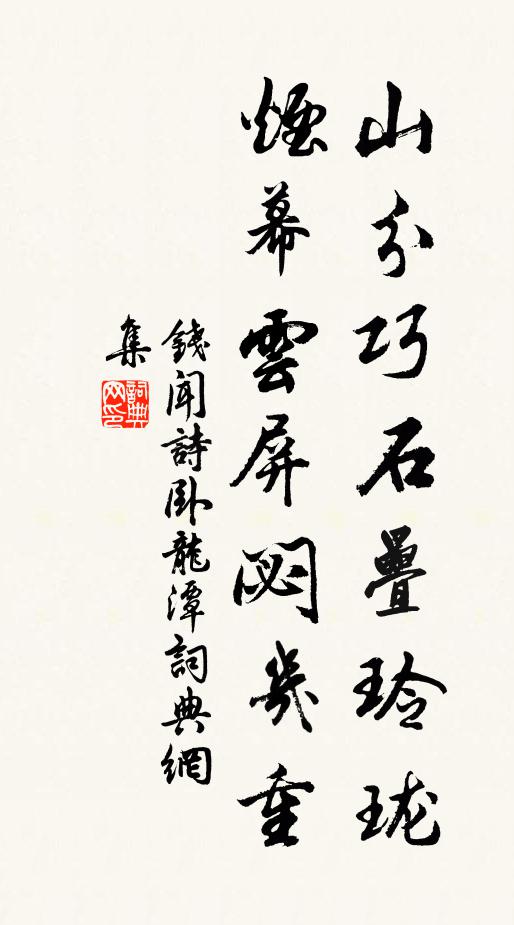 山分巧石疊玲珑
煙幕雲屏閟幾重
錢聞詩卧龍潭詞典網
集
詞典網印